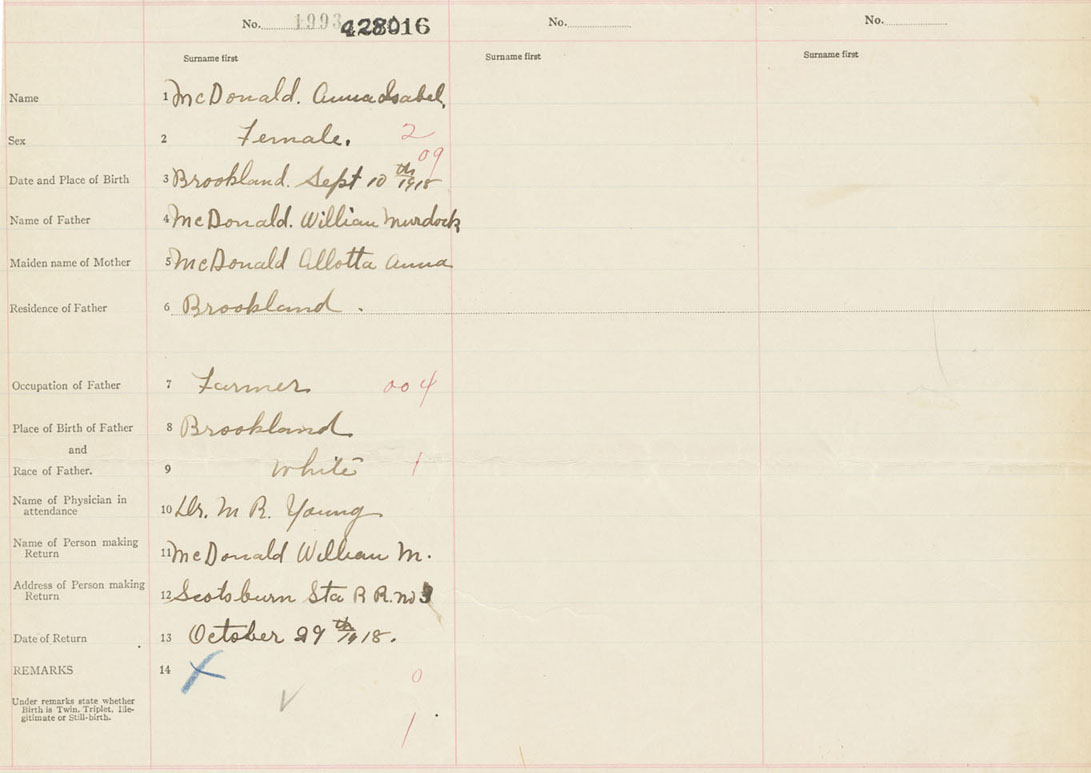 No. 1993 428016 No. No.
Surname first Surname first Surname first
Name 1 McDonald. Anna Isabel.
Sex 2 Female. 2
09
Date and Place of Birth 3 Brookland. Sept 10th 1918
Name of Father 4 McDonald. William Murdock
Maiden name of Mother 5 McDonald Allotta Anna
Residence of Father 6 Brookland.
Occupation of Father 7 Farmer 004
Place of Birth of Father 8 Brookland
and
Race of Father. 9 White 1
Name of Physician in
attendance 10 Dr. M R. Young
Name of Person making
Return 11 McDonald William M.
Address of Person making
Return 12 Scotsburn Sta R R. no 3
Date of Return 13 October 29th 1918.
REMARKS 14
0
Under remarks state whether
Birth is Twin, Triplet, Ille-
gitimate or Still-birth.
1